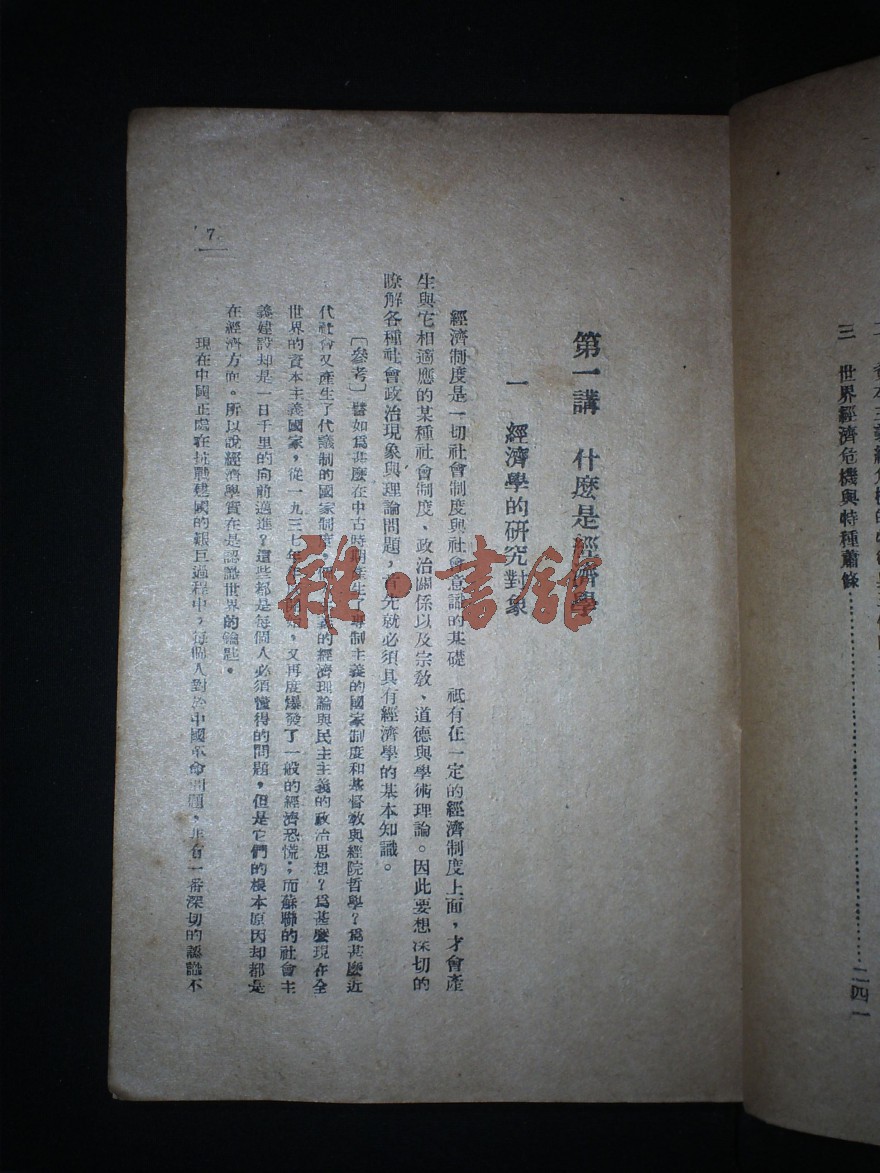 三　世界經濟危機與特種蕭條…………………………二四一
第一講　什麼是經濟學
一　經濟學的研究對象
經濟制度是一切社會制度與社會意識的基礎　祇有在一定的經濟制度上面，才會產
生與它相適應的某種社會制度、政治關係以及宗教、道德與學術理論。因此要想深切的
瞭解各種社會政治現象與理論問題，首先就必須具有經濟學的基本知識。
〔參考〕譬如爲甚麼在中古時期產生了專制主義的國家制度和基督教與經院哲學？爲甚麼近
代社會又產生了代議制的國家制度，義的經濟理論與民主主義的政治思想？爲甚麼現在全
世界的資本主義國家，從一九三七年，又再度爆發了一般的經濟恐慌；而蘇聯的社會主
義建設却是一日千里的向前邁進？這些都是每個人必須懂得的問題，但是它們的根本原因却都是
在經濟方面。所以說經濟學實在是認識世界的鑰匙。
現在中國正處在抗戰建國的艱巨過程中，每個人對於中國革命問題，非有一番深切的認識不
7
雜·書館